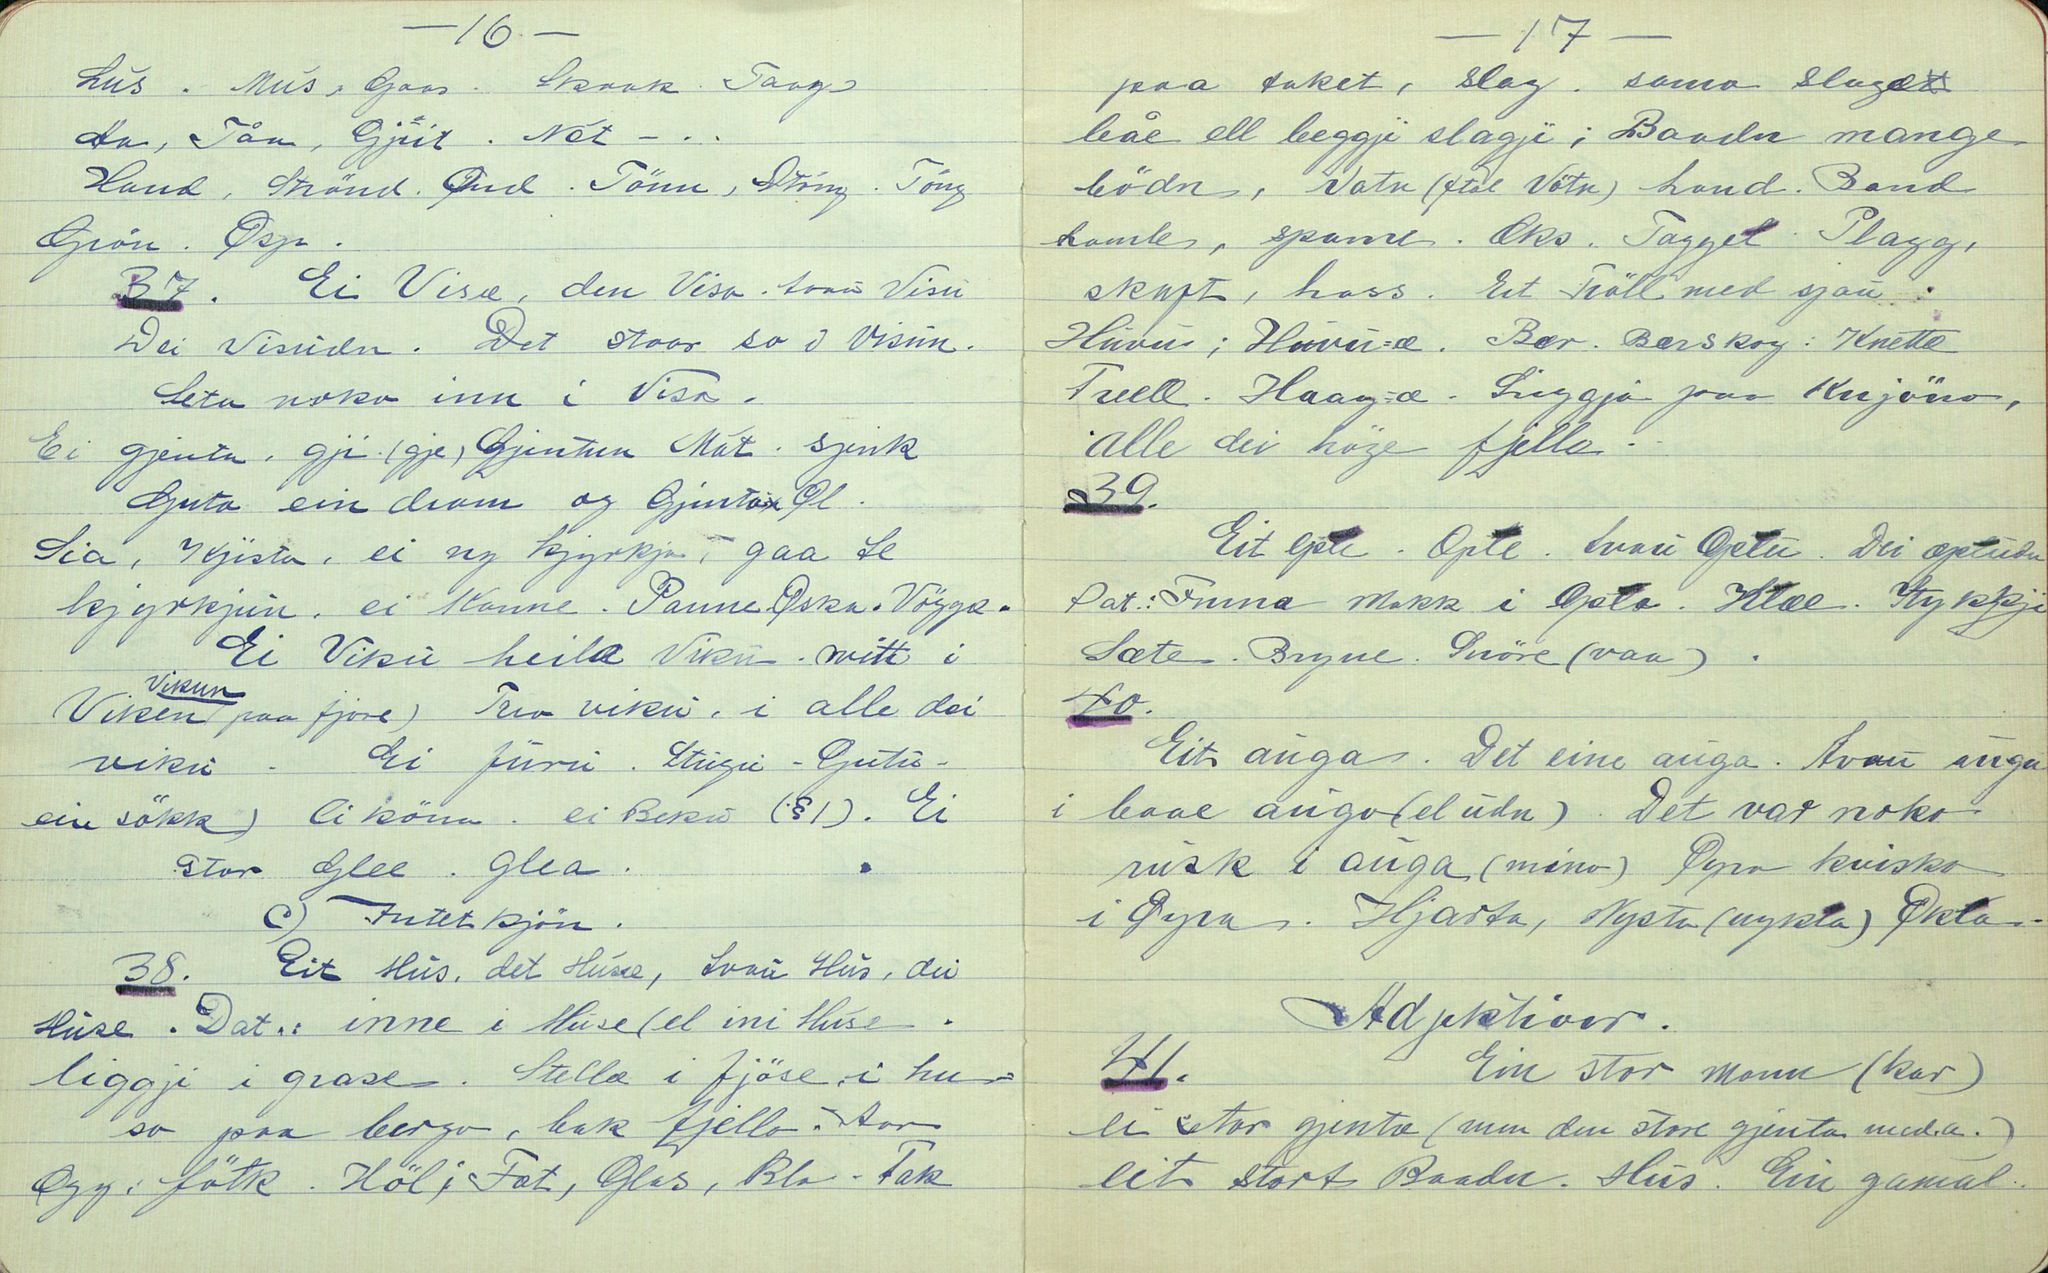 — 16 —
Lús . Mús, Gaas . Skaak . Taag
Aa, Tåa, Gjeit . Nót - . .
Hand, Strönd . Ønd . Tönn, Stöng . Töng
Grön . Øsp .
37. Ei Visæ, den Visa . tvau Visu
Dei Visudn . Det staar so i Visun .
Seta noko inn i Visa .
Ei gjenta, gji (gje) Gjentun Mat . sjenk
Guta ein dram og Gjento Øl .
Sia, Kjista, ei ny kjyrkja, gaa te
kjyrkjun . ei Kanne . Panne Øska . Vögga .
Ei Vikú heila Vikú . mitt i
Vikun
Viken (paa fjore) Trio vikú, i alle dei
vikú . Ei fúru . Stúgú - Gutú -
ein sökk) ei köna . ei Bekú (§1) . Ei
stor Glee . Glea .
c) Intetkjön .
38. Eit Hús, det Húse, tvau Hús, dei
Húse . Dat.: inne i Húse (el ini Húse .
liggji i grase . Stella i fjöse, i hu=
so paa bergo, bak fjello . Aar
Egg; fötk . Höl; Fat, Glas, Bla - Tak
— 17 —
paa taket, slag . sama slagæ
båe ell beggji slagji; Baadn mange
bödn, Vatn (ftal Vötn) hand . Band
lamb, spann . Øks . Tagget . Plagg,
skaft, hass . Eit Tröll med sjau
Húvú; Húvú=æ . Bær . Bærskog : Knette
Trell . Haag=æ . Liggja paa Knjöno,
alle dei höge fjello .
39.
Eit Eple . Eple . tvau Eplú . Dei eplúdn
Dat.: Finna Makk i Epla . Klæe . Stykkji
Sæte . Bryne . Snöre (vaa) .
40.
Eit auga . Det eine auga . tvau augú
i baae augo (el údn) . Det var noko
rusk i auga (mino) Øyra kviska
i Øyra . Hjarta, Nysta (nykta) Økta .
Adjektiver .
41. Ein stor mann (kar)
ei stor gjenta (men den store gjenta med a.)
eit stort Baadn . Hús . Ein gamal .